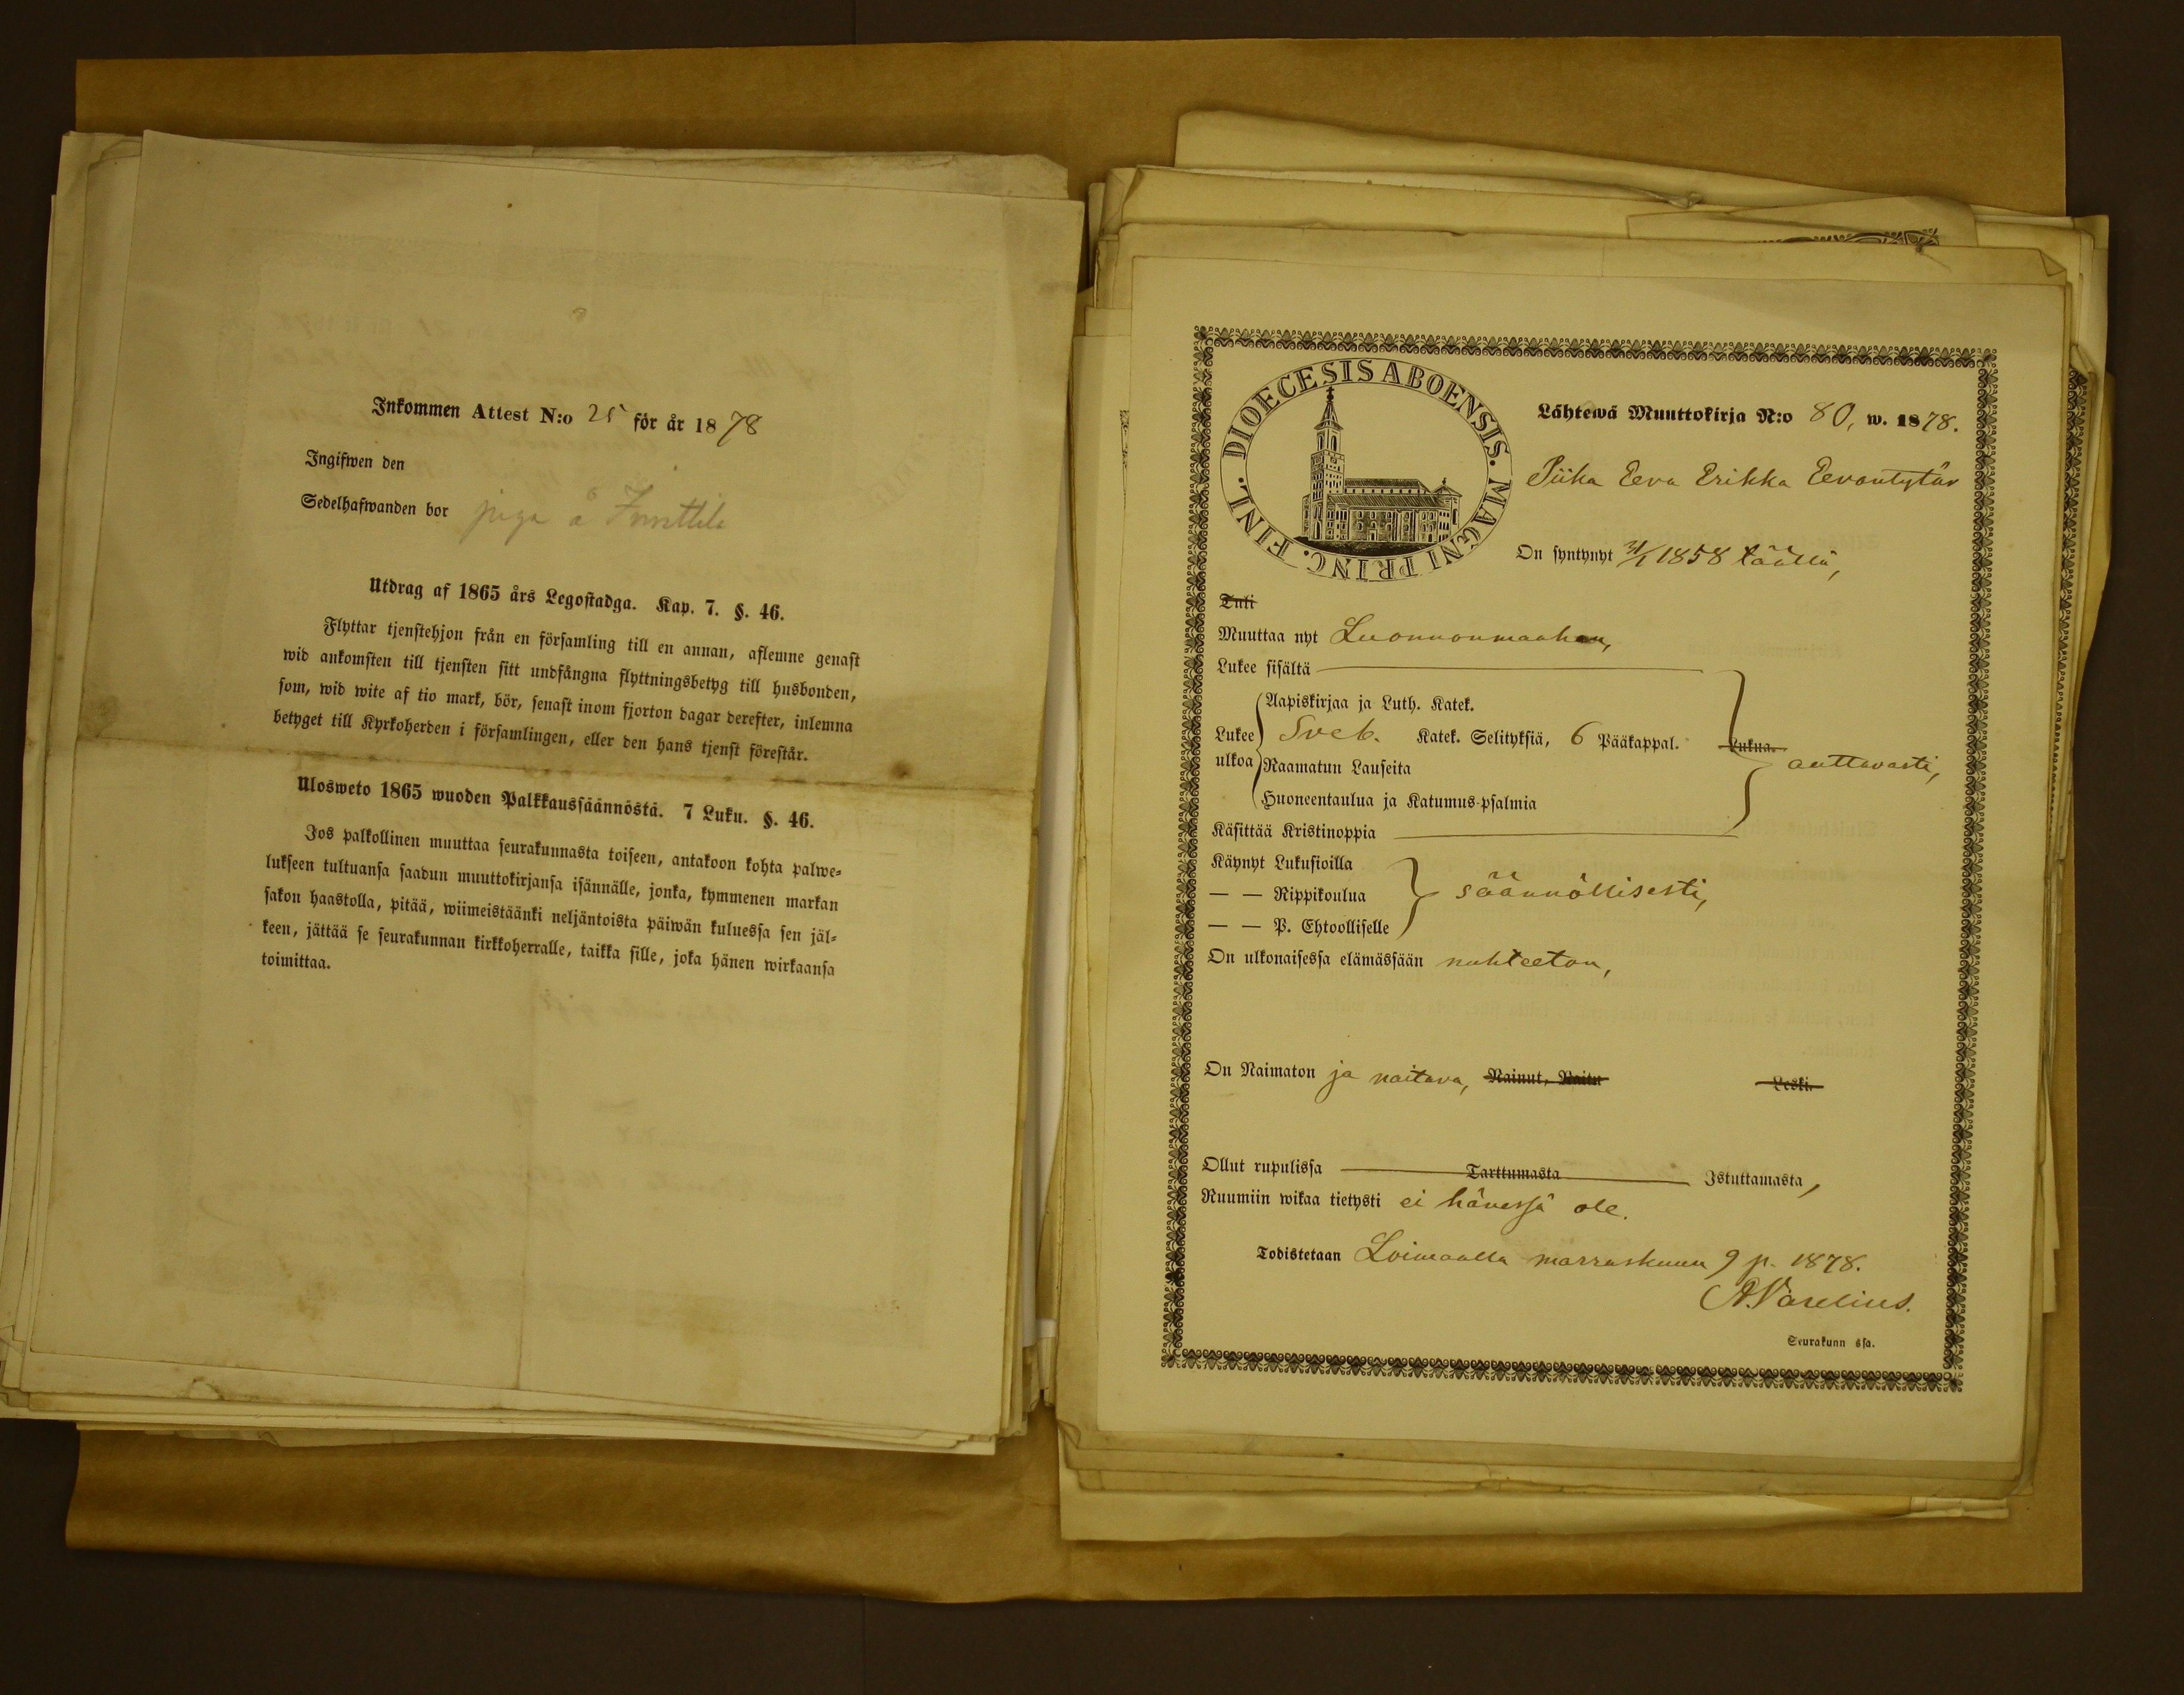 Inkommen Attest N:o 25 för år 1878
Ingifwen den
Sedelhafwanden bor piga å
Utdrag af 1865 års Legostadga. Kap. 7. §. 46.
Flyttar tjenstehjon från en församling till en annan, aflemne genast
wid ankomsten till tjensten sitt undfångna flyttningsbetyg till husbonden,
som, wid wite af tio mark, bör, senast inom fjorton dagar derefter, inlemna
betyget till Kyrkoherden i församlingen, eller den hans tjenst förestår.
Ulosweto 1865 wuoden Palkkaussäännöstä. 7 Luku. §. 46.
Jos palkollinen muuttaa seurakunnasta toiseen, antakoon kohta palwe=
lukseen tultuansa saadun muuttokirjansa isännälle, jonka, kymmenen markan
sakon haastolla, pitää, wiimeistäänki neljäntoista päiwän kuluessa sen jäl=
keen, jättää se seurakunnan kirkkoherralle, taikka sille, joka hänen wirkaansa
toimittaa.
DIOECESIS ABOENSIS. MAGNI PRINC. FINL.
Lähtewä Muuttokirja N:o 80, w. 1878.
Piika Eeva Erikka Eevantytär
On syntynyt 1858 täällä,
Tuli
Muuttaa nyt Luonnonmaahan,
Lukee sisältä
Aapiskirjaa ja Luth. Katek.
Lukee ulkoa Sveb. Katek. Selityksiä, 6 Pääkappal. Lukua. auttavasti,
Raamatun Lauseita
Huoneentaulua ja Katumus-psalmia
Käsittää Kristinoppia
Käynyt Lukusioilla
— — Rippikoulua säännöllisesti,
— — P. Ehtoolliselle
On ulkonaisessa elämässään nuhteeton,
On Naimaton ja naitava, Nainut, Naitu Leski.
Ollut rupulissa Tarttumasta Istuttamasta,
Ruumiin wikaa tietysti ei hänessä ole.
Todistetaan Loimaalla marraskuun 9 p. 1878.
A. Varelius.
Seurakunn ssa.